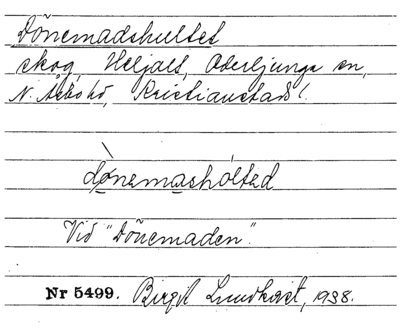 Dönemadshultet
skog, Heljalt, Oderljunga sn,
N. Åsbo hd, Kristianstads l.
dønemashóltəd
Vid "Dönemaden".
Nr 5499. Birgit Lundkvist, 1938.